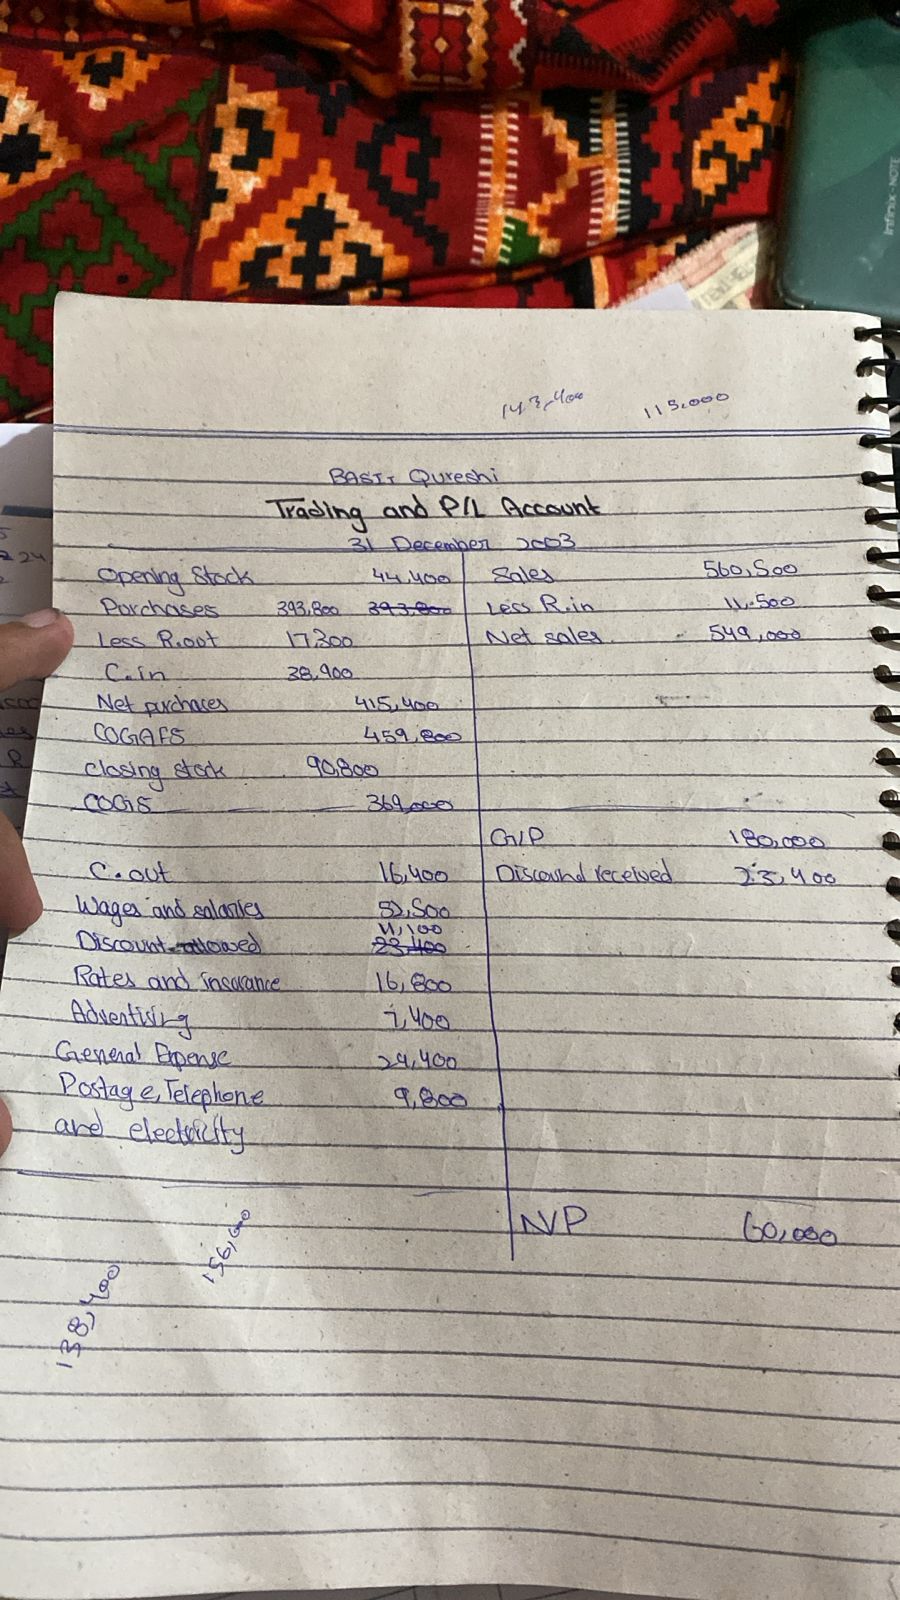 143,400 115,000
BASIT Qureshi
Trading and P/L Account
31 December 2003
Opening Stock 44,400 Sales 560,500
Purchases 393,800 393,800 Less R.in 11,500
Less R.out 17,300 Net sales 549,000
C.in 38,900
Net purchaces 415,400
COGAFS 459,800
closing stock 90,800
COGS 369,000
G/P 180,000
C.out 16,400 Discound received 23,400
Wages and salaries 52,500
11,100
Discount allowed 23,400
Rates and insurance 16,800
Advertising 7,400
General Expense 29,400
Postage, Telephone 9,800
and electricity
NP 60,000
156,600
138,400
Infinix NOTE